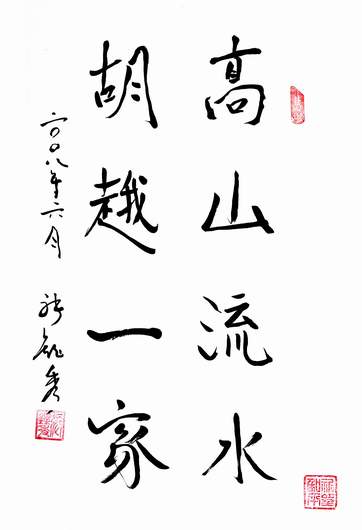 高山流水
胡越一家
二〇〇八年六月